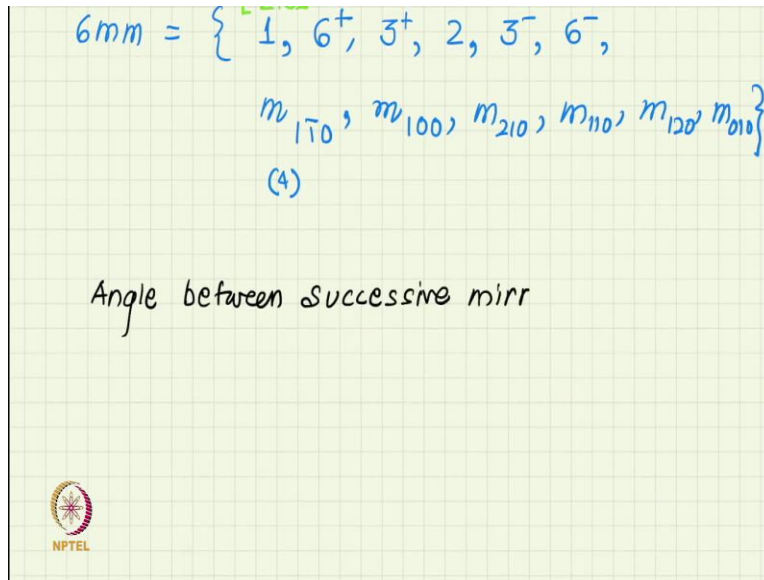 6mm = { 1, 6⁺, 3⁺, 2, 3⁻, 6⁻,
m₁₁̅₀, m₁₀₀, m₂₁₀, m₁₁₀, m₁₂₀, m₀₁₀}
(4)
Angle between successive mirr
NPTEL